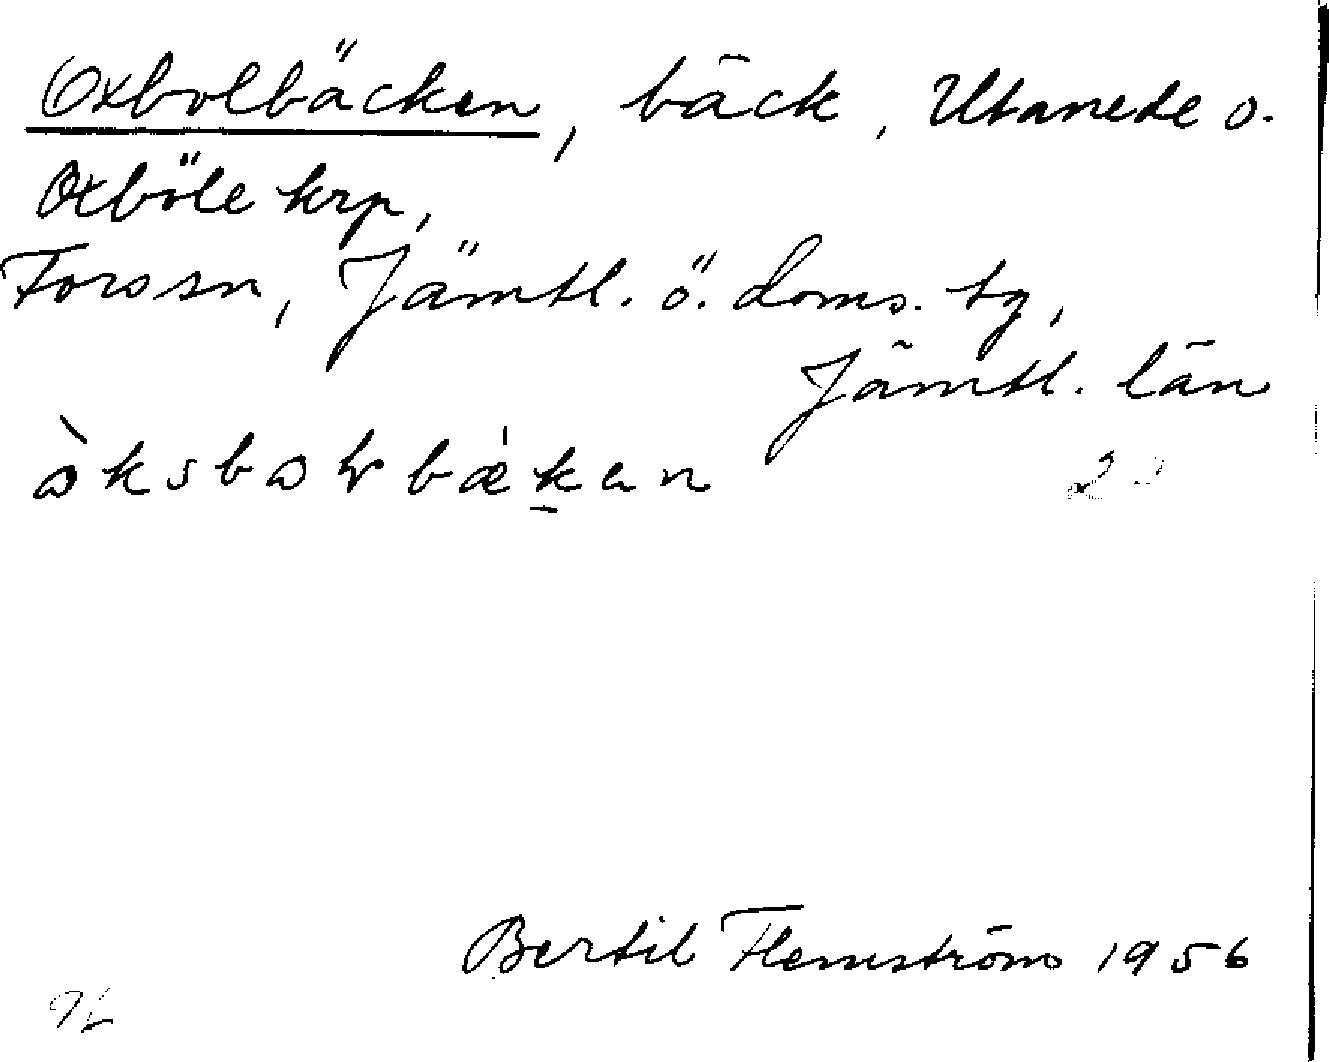 Oxbolbäcken, bäck, Utanede o.
Oxböle krp,
Fors sn, Jämtl. ö. doms. tg,
Jämtl. län
Bertil Flemström 1956